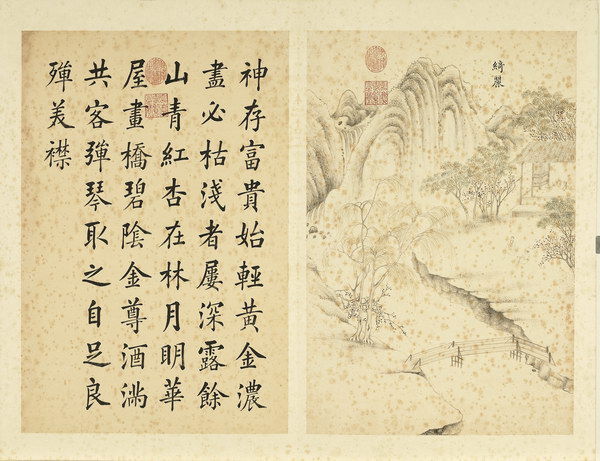 綺麗
神存富貴始輕黃金濃
盡必枯淺者屢深露餘
山青紅杏在林月明華
屋畫橋碧陰金尊酒滿
共客彈琴取之自足良
殫美襟